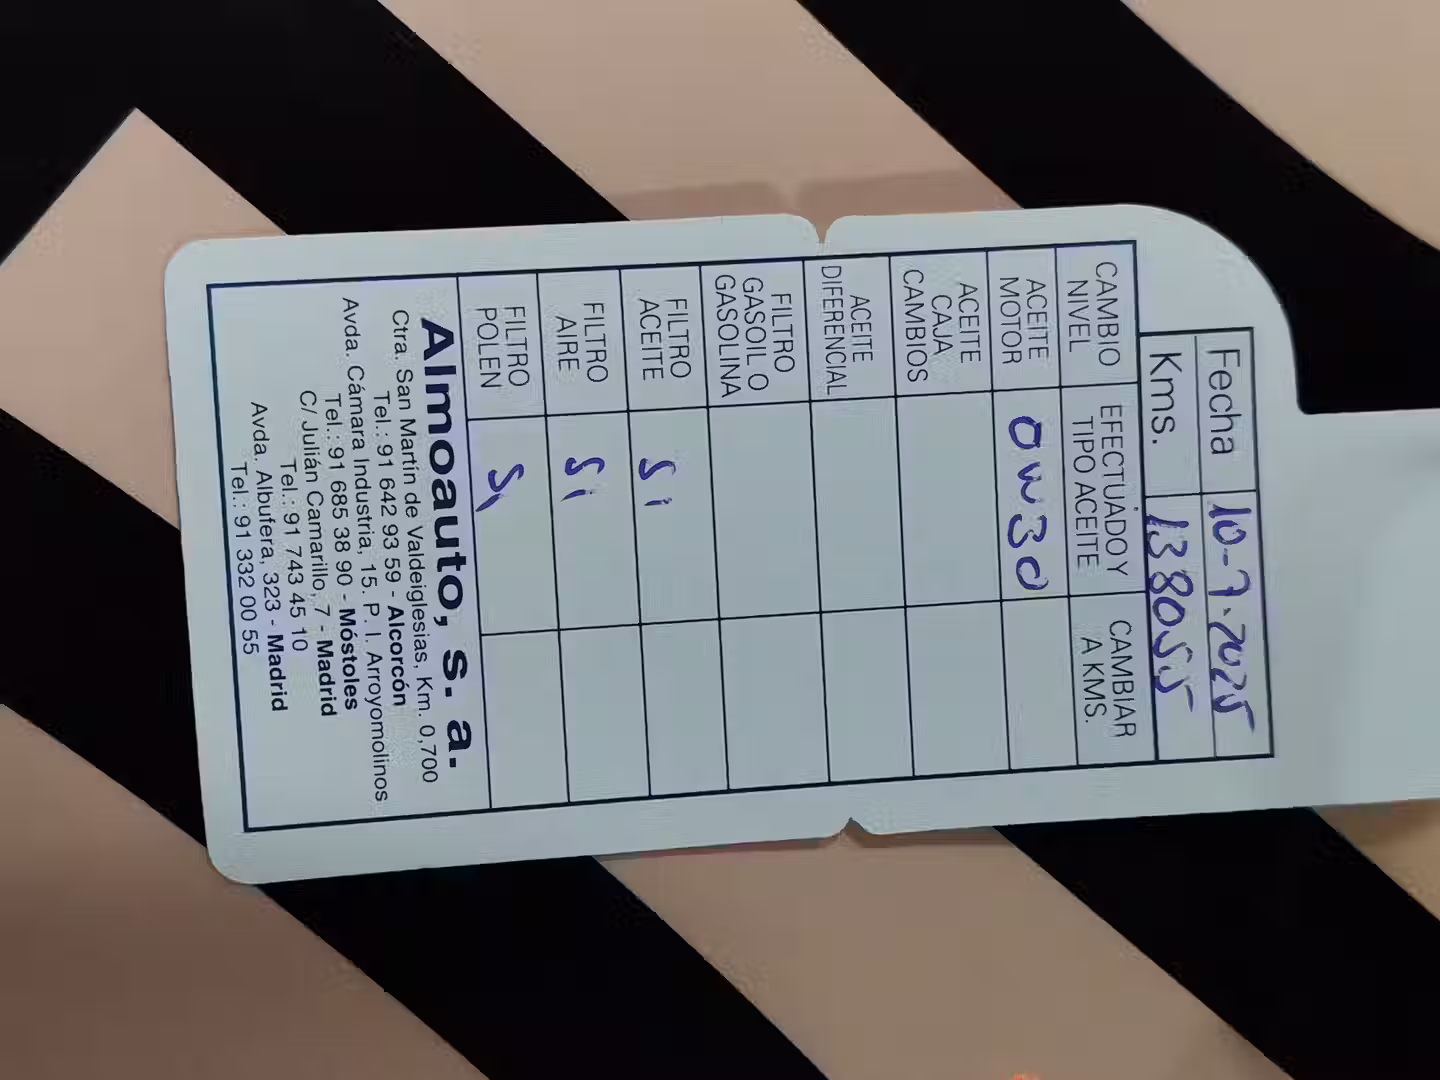 Fecha 10-7-2025
Kms. 138055
CAMBIO NIVEL EFECTUADO Y TIPO ACEITE CAMBIAR A KMS.
ACEITE MOTOR 0W30
ACEITE CAJA CAMBIOS
ACEITE DIFERENCIAL
FILTRO GASOIL O GASOLINA
FILTRO ACEITE Si
FILTRO AIRE Si
FILTRO POLEN Si
Almoauto, s. a.
Ctra. San Martín de Valdeiglesias, Km. 0,700
Tel.: 91 642 93 59 - Alcorcón
Avda. Cámara Industria, 15. P. I. Arroyomolinos
Tel.: 91 685 38 90 - Móstoles
C/ Julián Camarillo, 7 - Madrid
Tel.: 91 743 45 10
Avda. Albufera, 323 - Madrid
Tel.: 91 332 00 55